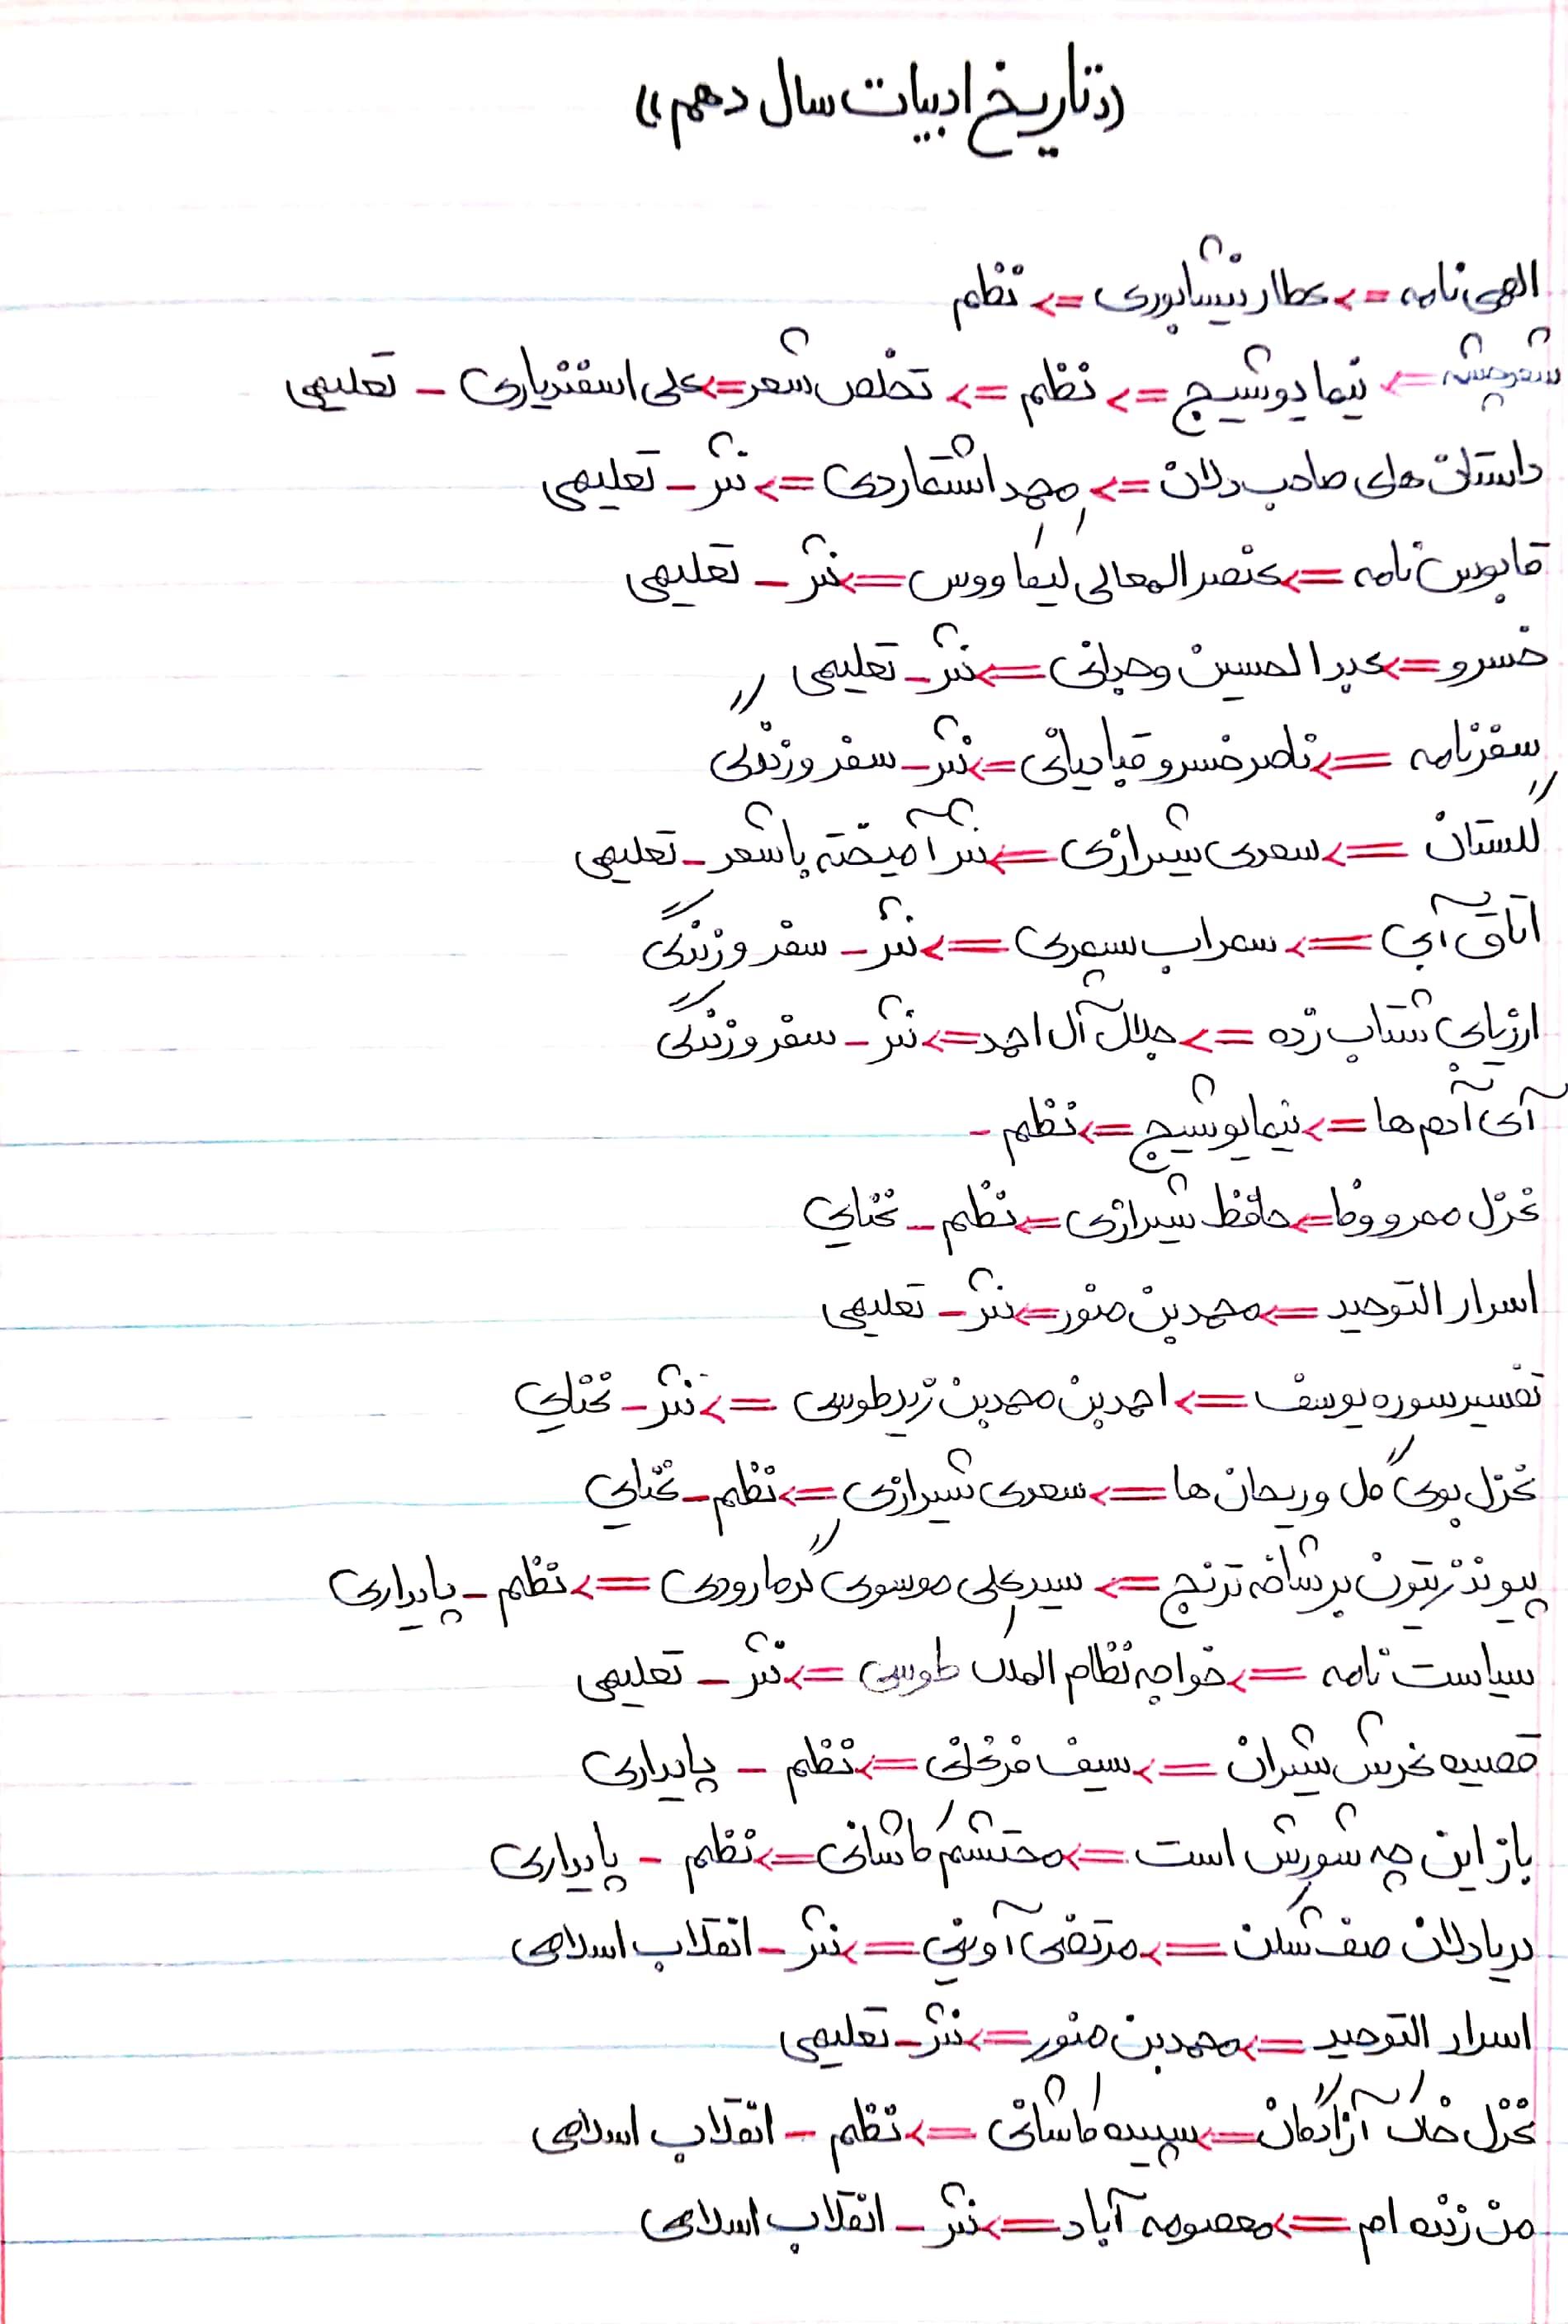 «تاریخ ادبیات سال دهم»
الهی نامه => عطار نیشابوری => نظم
شعر چشمه => نیما یوشیج => نظم => تخلص شعر => علی اسفندیاری - تعلیمی
داستان های صاحب دلان => محمدی اشتهاردی => نثر - تعلیمی
قابوس نامه => عنصرالمعالی کیکاووس => نثر - تعلیمی
خسرو => عبدالحسین وجدانی => نثر - تعلیمی
سفرنامه => ناصرخسرو قبادیانی => نثر - سفر و زندگی
گلستان => سعدی شیرازی => نثر آمیخته باشعر - تعلیمی
اتاق آبی => سهراب سپهری => نثر - سفر و زندگی
ارزیابی شتاب زده => جلال آل احمد => نثر - سفر و زندگی
آی آدم ها => نیما یوشیج => نظم -
غزل مهر و وفا => حافظ شیرازی => نظم - غنایی
اسرار التوحید => محمد بن منور => نثر - تعلیمی
تفسیر سوره یوسف => احمد بن محمد بن زید طوسی => نثر - غنایی
غزل بوی گل و ریحان ها => سعدی شیرازی => نظم - غنایی
پیوند زیتون بر شاخه ترنج => سید علی موسوی گرمارودی => نظم - پایداری
سیاست نامه => خواجه نظام الملک طوسی => نثر - تعلیمی
قصیده غرش شیران => سیف فرغانی => نظم - پایداری
باز این چه شورش است => محتشم کاشانی => نظم - پایداری
دریادلان صف شکن => مرتضی آوینی => نثر - انقلاب اسلامی
اسرار التوحید => محمد بن منور => نثر - تعلیمی
غزل خاک آزادگان => سپیده کاشانی => نظم - انقلاب اسلامی
من زنده ام => معصومه آباد => نثر - انقلاب اسلامی